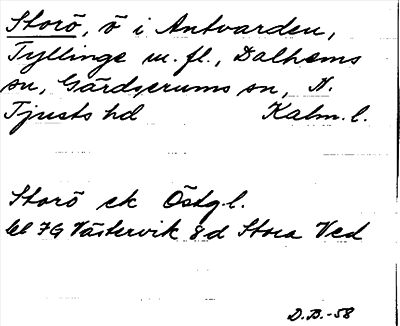 Storö, ö i Antvarden,
Tyllinge m.fl., Dalhems
sn, Gärdserums sn, N.
Tjusts hd Kalm. l.
Storö ek Östg.l.
bl 7G Västervik 8d Stora Ved
D.B.-58